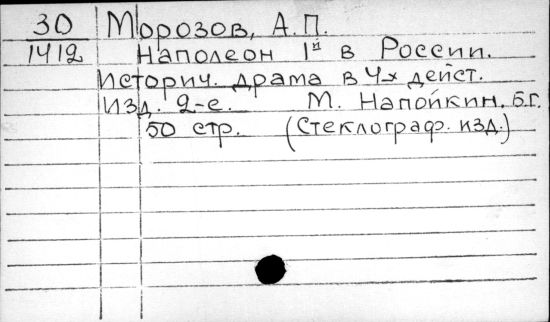 30 Морозов, А.П.
1412 Наполеон Iй в России.
Историч. драма в 4х дейст.
Изд. 2-е. М. Напойкин, б.г.
50 стр. (Стеклограф. изд.)